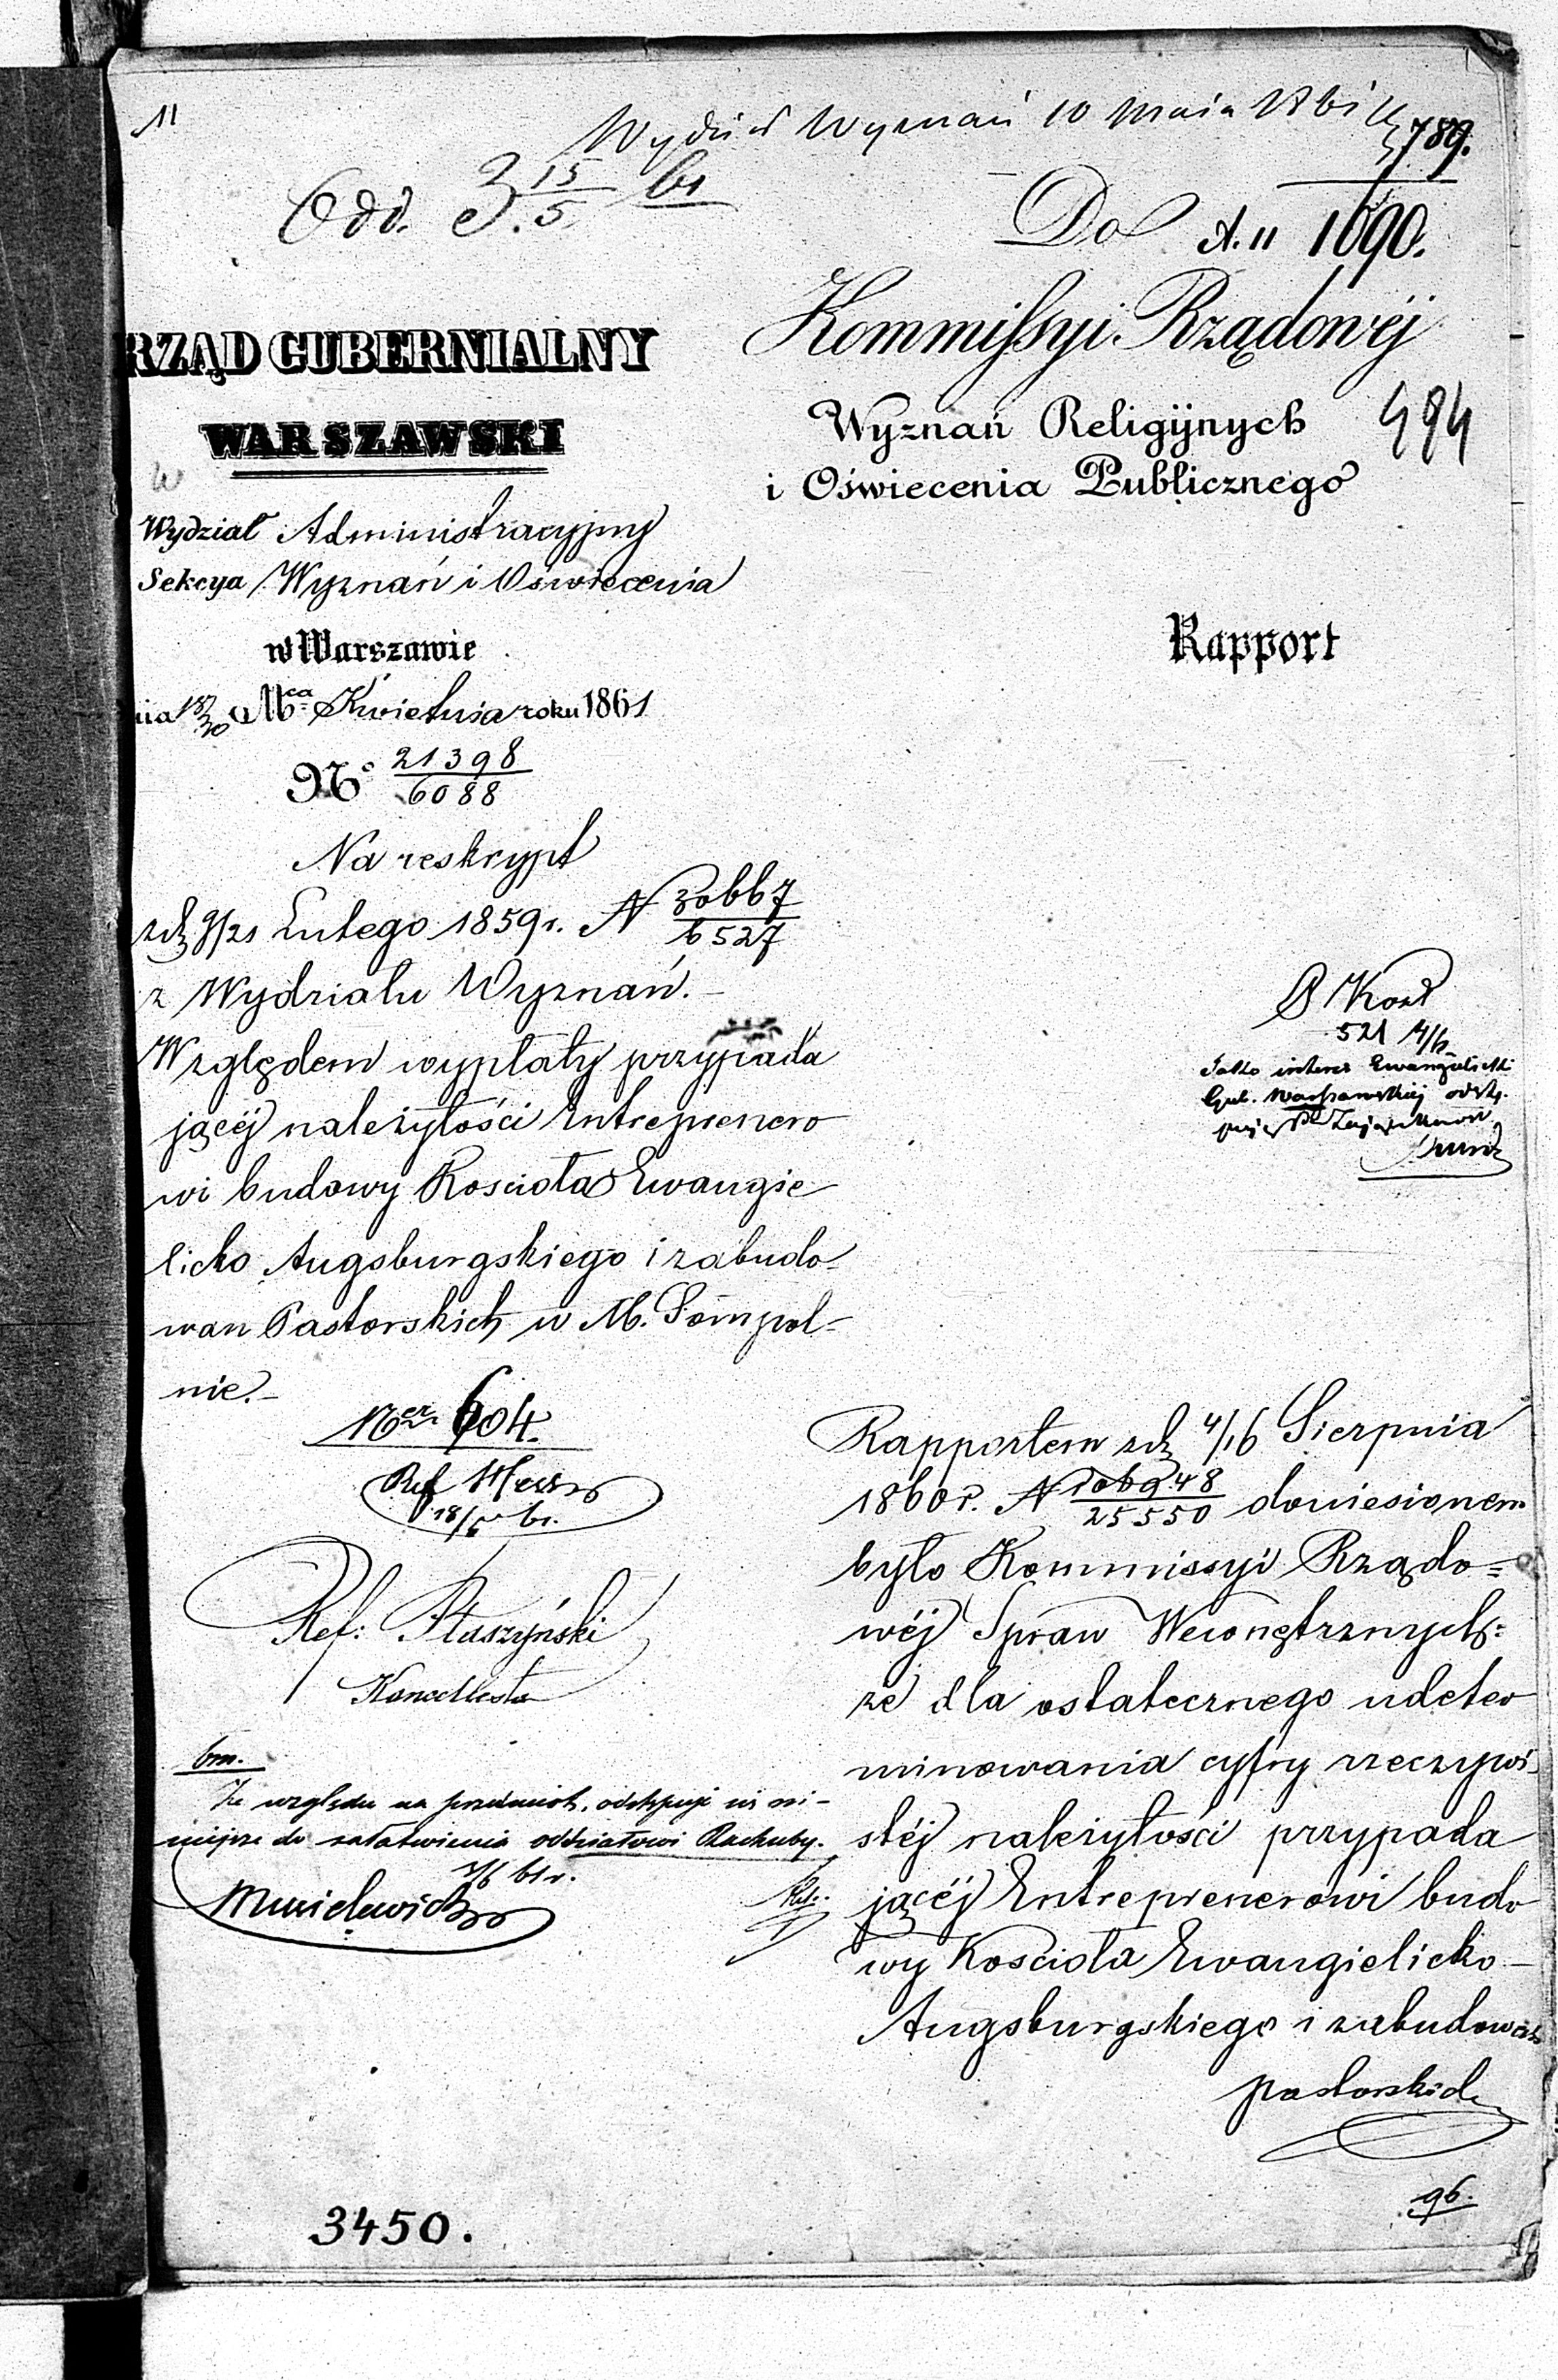 11
Wydział Wyznań 10 Maia 1861 r.
789.
Odd. 3. 15/5 61
Do A. 11 1690.
Kommissyi Rządowéj
Wyznań Religijnych 494
i Oświecenia Publicznego
RZĄD GUBERNIALNY
WARSZAWSKI
Wydział Administracyjny
Sekcya Wyznań i Oświecenia
w Warszawie
nia 18/30 Mca Kwietnia roku 1861
No 21398/6088
Rapport
Na reskrypt
z d. 9/21 Lutego 1859 r. N 30667/6527
z Wydziału Wyznań.-
Względem wypłaty przypada
jącéj należytości Entreprenero
wi budowy Kościoła Ewangie
licko Augsburgskiego i zabudo-
wan Pastorskich w M. Sompol-
nie.-
521
Jako interes Ewangelicki
Gub. Warszawskiej
Ner 604.
Ref
18/5 61.
Ref: Ptaszyński
Kancellista
bm.
Ze względu na przedmiot, odstępuje się ni-
niejsze do załatwienia oddziałowi Rachuby.
61 r.
Rapportem z d. 4/16 Sierpnia
1860 r. N 106948/25550 doniesionem
było Kommissyi Rządo=
wéj Spraw Wewnętrznych:
że dla ostatecznego udeter
minowania cyfry rzeczywi
stéj należytości przypada
jącéj Entreprenerowi budo
wy Kościoła Ewangielicko-
Augsburgskiego i zabudowań
pastorskich
96.
3450.